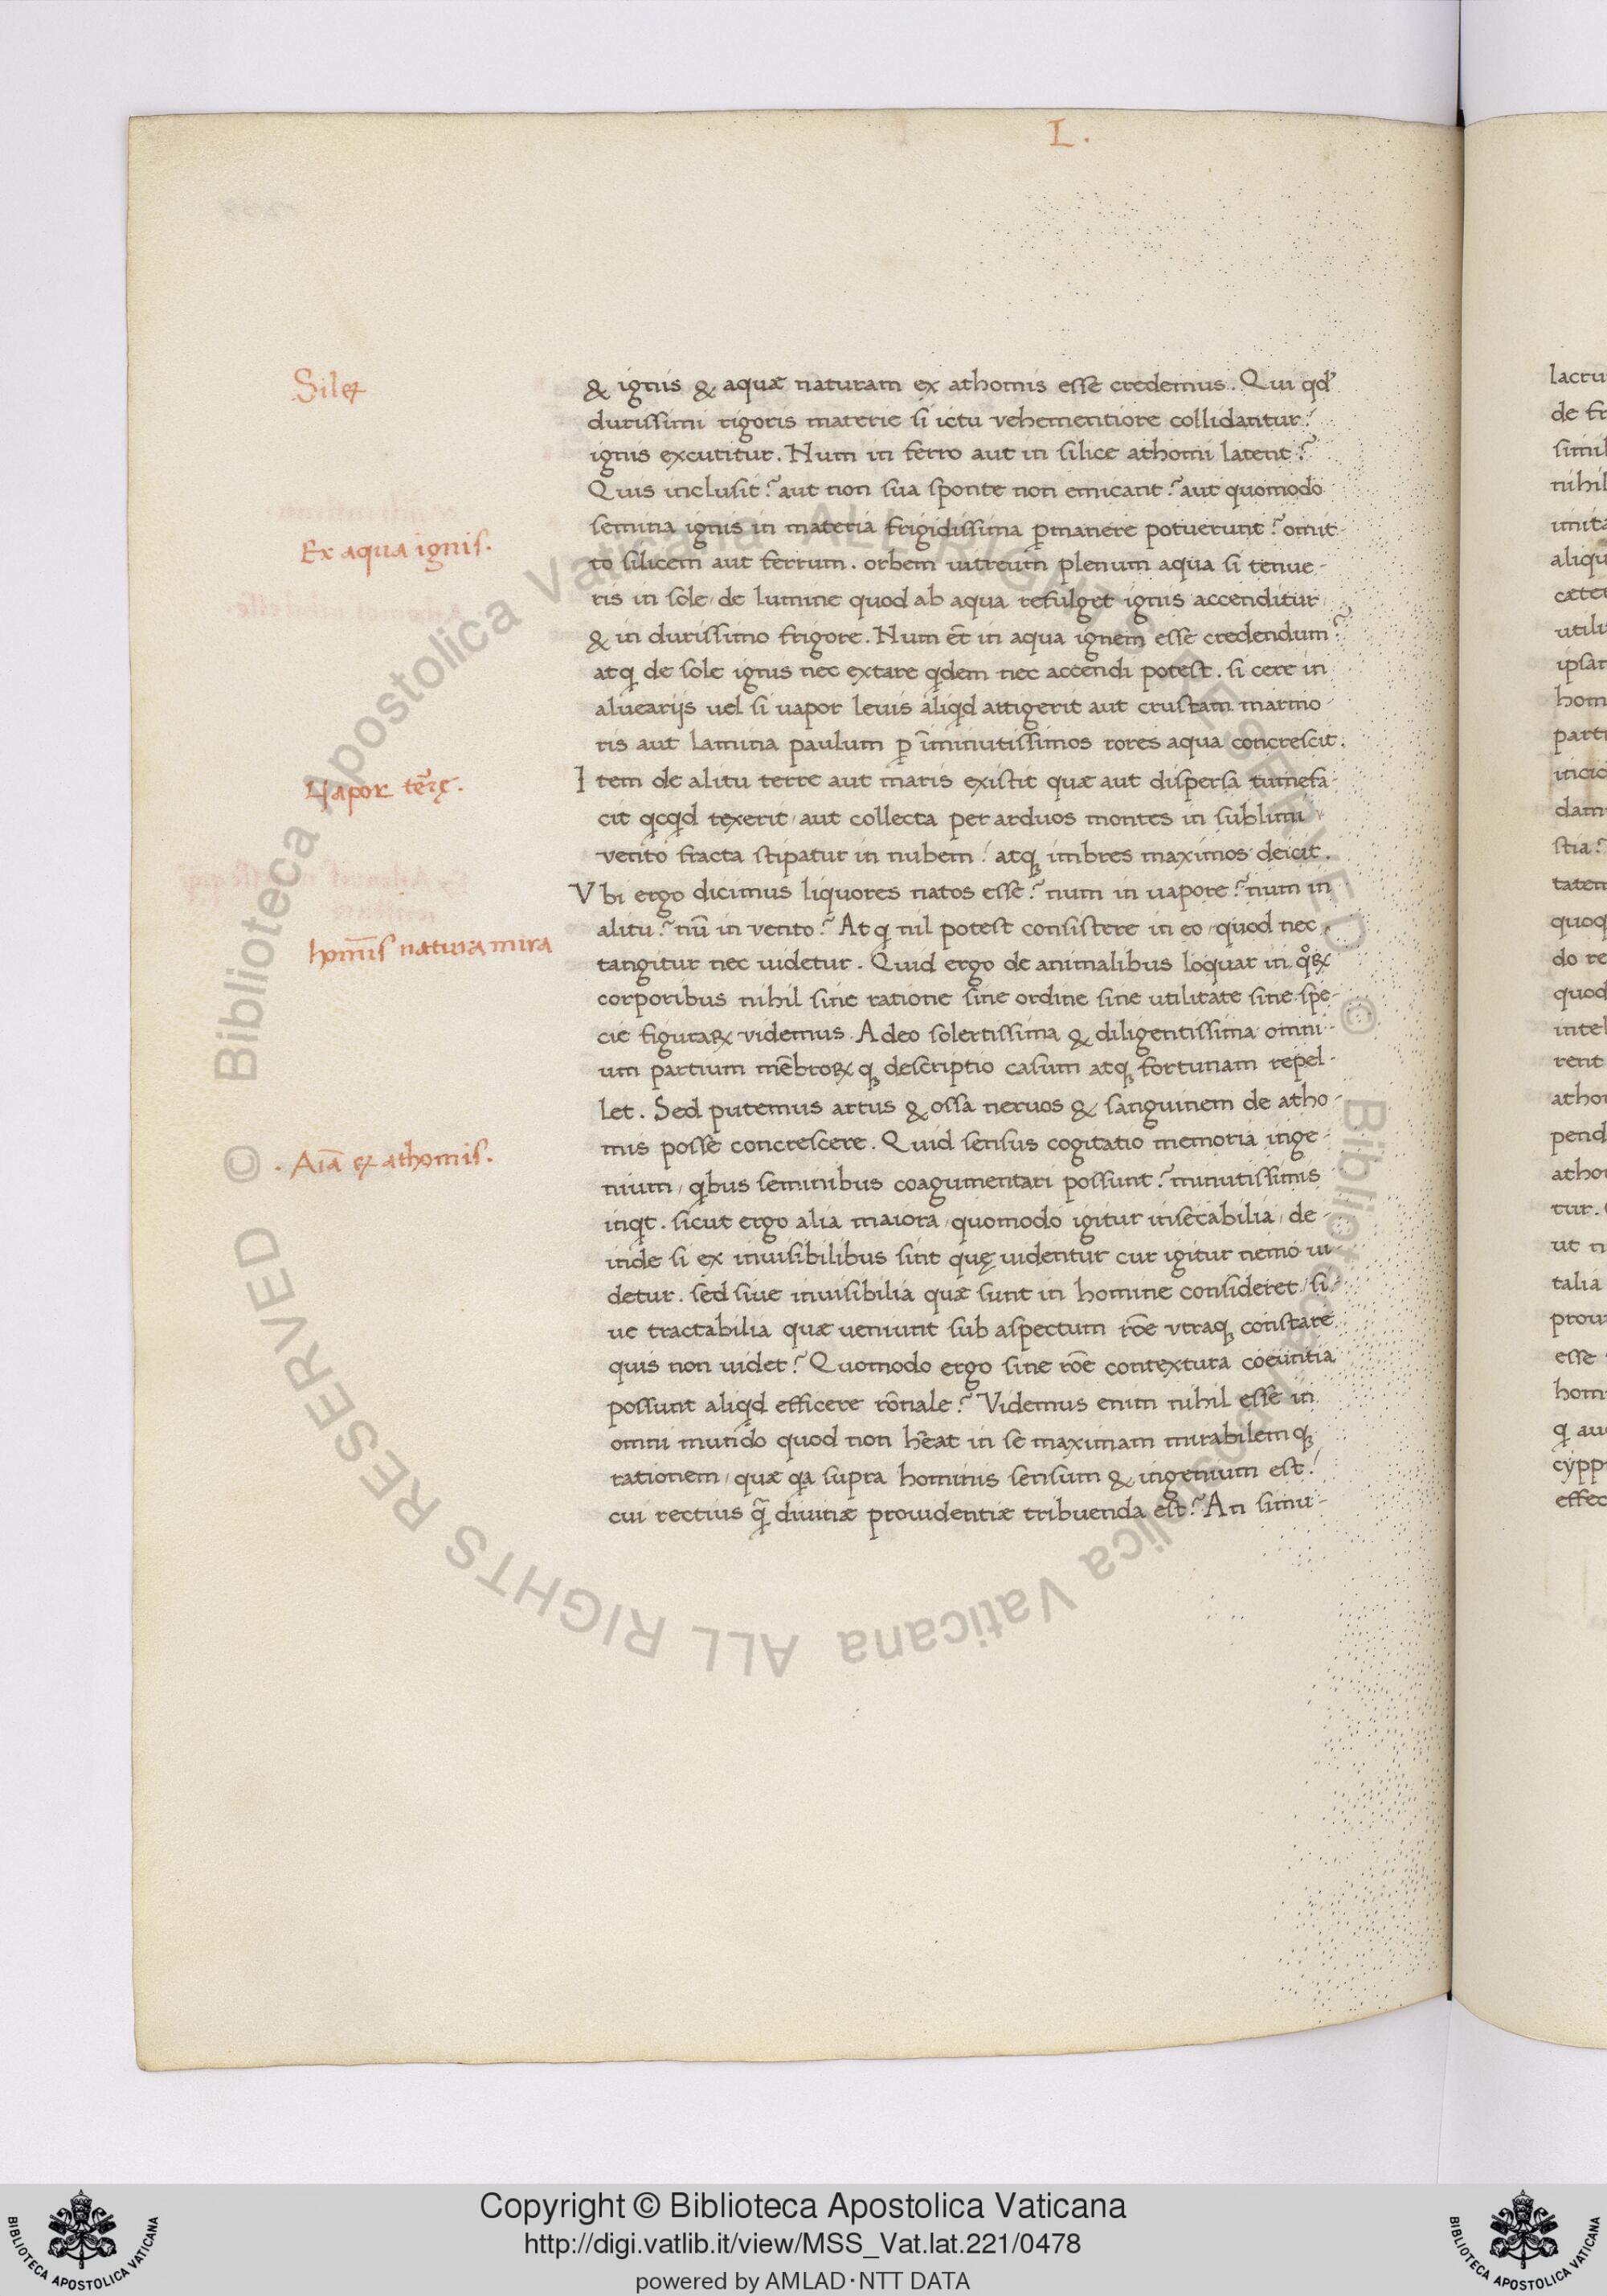 L.
Silex
& ignis & aquæ naturam ex athomis esse credemus. Qui qd'
durissimi rigoris materie si ictu vehementiore collidantur?
ignis excutitur. Num in ferro aut in silice athomi latent?
Quis inclusit? aut non sua sponte non emicant? aut quomodo
semina ignis in materia frigidissima ꝑmanere potuerunt? omit-
Ex aqua ignis.
to silicem aut ferrum. orbem vitreum plenum aqua si tenue-
ris in sole/ de lumine quod ab aqua refulget ignis accenditur
& in durissimo frigore. Num et̄ in aqua ignem esse credendum?
atq̨ de sole ignis nec extare qdem nec accendi potest. si cere in
aluearijs uel si uapor leuis aliqd attigerit aut crustam marmo-
ris aut lamina paulum ꝑ īminutissimos rores aqua concrescit.
Vapor terrę.
Item de alitu terre aut maris existit quæ aut dispersa tumefa-
cit qcqd texerit/ aut collecta per arduos montes in sublimi
vento fracta stipatur in nubem! atq; imbres maximos deicit.
Vbi ergo dicimus liquores natos esse? num in uapore? num in
alitu? nū in vento? Atq̨ nil potest consistere in eo/ quod nec
hoīnis natura mira
tangitur nec uidetur. Quid ergo de animalibus loquar in qͦꝝ
corporibus nihil sine ratione sine ordine sine utilitate sine spe-
cie figuraꝝ videmus. Adeo solertissima & diligentissima omni-
um partium mēbroꝝ q; descriptio casum atq; fortunam repel-
let. Sed putemus artus & ossa neruos & sanguinem de atho-
mis posse concrescere. Quid sensus cogitatio memoria inge-
.Aīa ex athomis.
nium/ qbus seminibus coagumentari possunt? minutissimis
inqt. sicut ergo alia maiora/ quomodo igitur insecabilia/ de-
inde si ex inuisibilibus sint quę uidentur cur igitur nemo ui-
detur. sed siue inuisibilia quæ sunt in homine consideret/ si-
ue tractabilia quæ ueniunt sub aspectum rōe vtraq; constare
quis non uidet? Quomodo ergo sine rōe contextura coeuntia
possunt aliqd efficere rōnale? Videmus enim nihil esse in
omni mundo quod non hēat in se maximam mirabilem q;
rationem/ quæ qa supra hominis sensum & ingenium est!
cui rectius q̃ diuinæ prouidentiæ tribuenda est? An simu-
lacru
de fr
simil
nihil
imita
aliqu
cæter
utili
ipsar
hom
parti
inici
dam
stia?
taten
quoq
do re
quod
intel
rent
athor
pend
athor
tur.
ut n
talia
proui
esse
hom
q̨ au
cypp
effec
© Biblioteca Apostolica Vaticana ALL RIGHTS RESERVED © Biblioteca Apostolica Vaticana ALL RIGHTS RESERVED
BIBLIOTECA APOSTOLICA VATICANA
Copyright © Biblioteca Apostolica Vaticana
http://digi.vatlib.it/view/MSS_Vat.lat.221/0478
powered by AMLAD·NTT DATA
BIBLIOTECA APOSTOLICA VATICANA